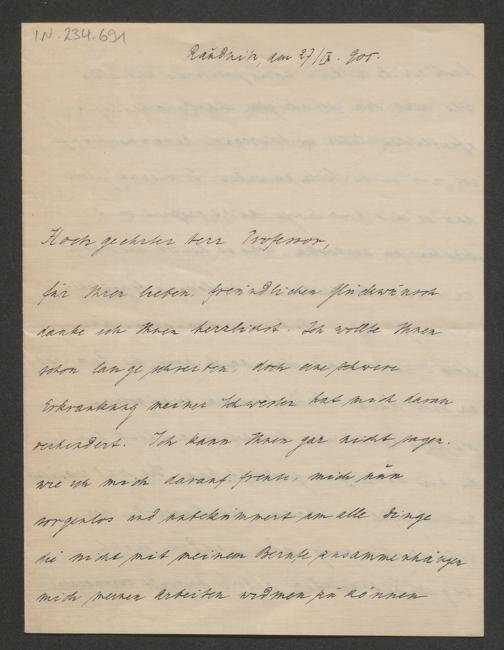 IN. 234.691
Raudnitz, am 27/IX. 905.
Hoch geehrter Herr Professor,
für Ihren lieben freundlichen Glückwunsch
danke ich Ihnen herzlichst. Ich wollte Ihnen
schon lange schreiben doch eine schwere
Erkrankung meiner Schwester hat mich daran
verhindert. Ich kann Ihnen gar nicht sagen.
wie ich mich darauf freute, mich nun
sorgenlos und unbekümmert um alle dinge
die nicht mit meinem Berufe zusammenhängen
mich meinen Arbeiten widmen zu können